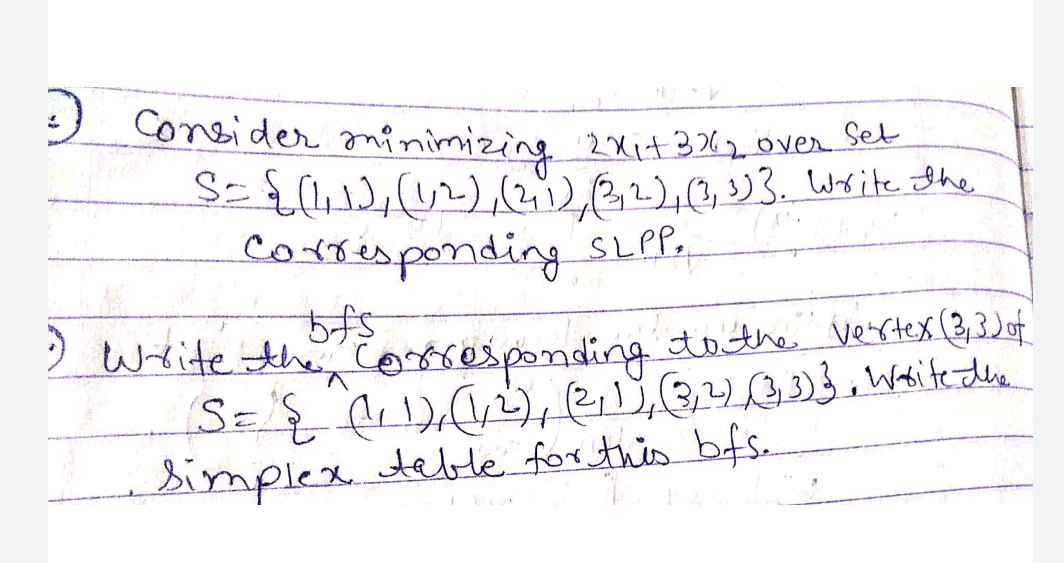 Consider minimizing 2x₁+3x₂ over set
S={(1,1),(1,2),(2,1),(3,2),(3,3)}. Write the
corresponding SLPP.
bfs
Write the ^ corresponding to the vertex (3,3) of
S={ (1,1),(1,2),(2,1),(3,2),(3,3)}. Write the
simplex table for this bfs.